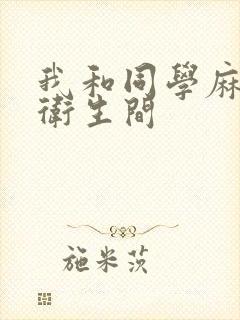 我和同學麻
衛生間
施米茨